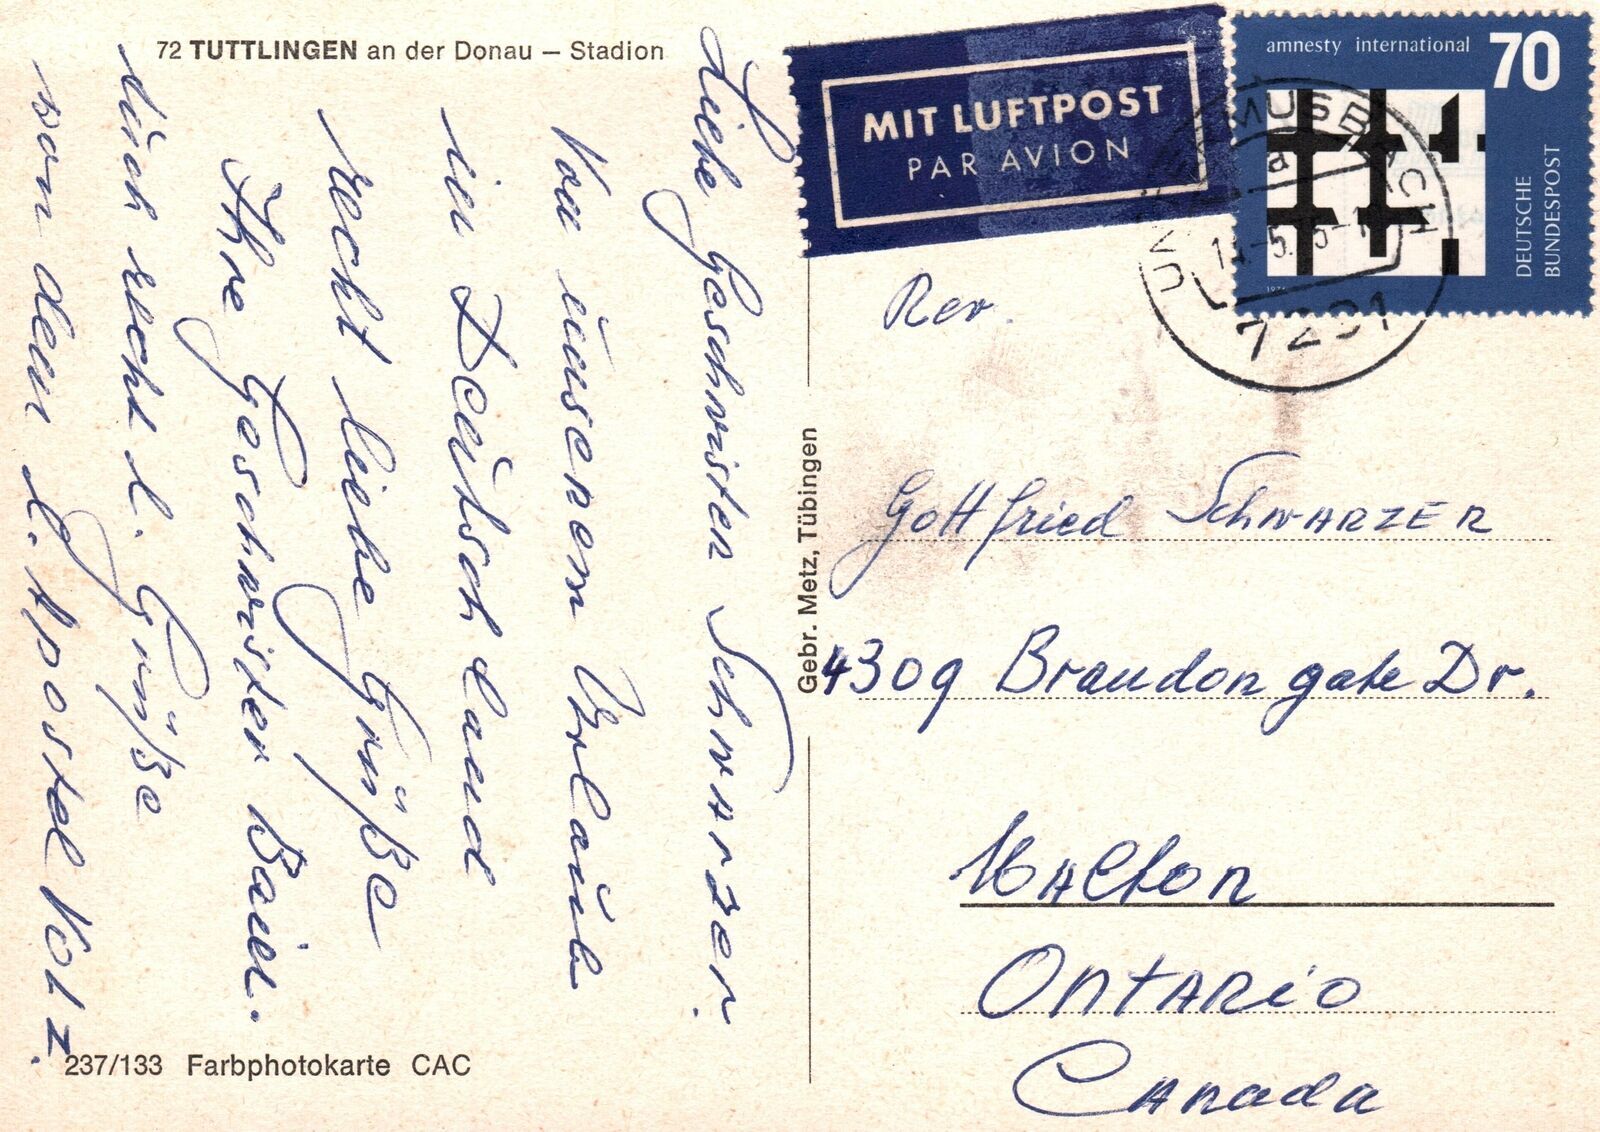 72 TUTTLINGEN an der Donau – Stadion
Liebe Geschwister Schwarzer.
Von unserem Urlaub
in Deutschland
recht liebe Grüße
Ihre Geschwister Baier.
Auch recht l. Grüße
von dem l. Apostel Volz.
237/133 Farbphotokarte CAC
Gebr. Metz, Tübingen
MIT LUFTPOST
PAR AVION
amnesty international 70
DEUTSCHE
BUNDESPOST
7201
Rev.
Gottfried Schwarzer
4309 Brandon gate Dr.
Malton
Ontario
Canada